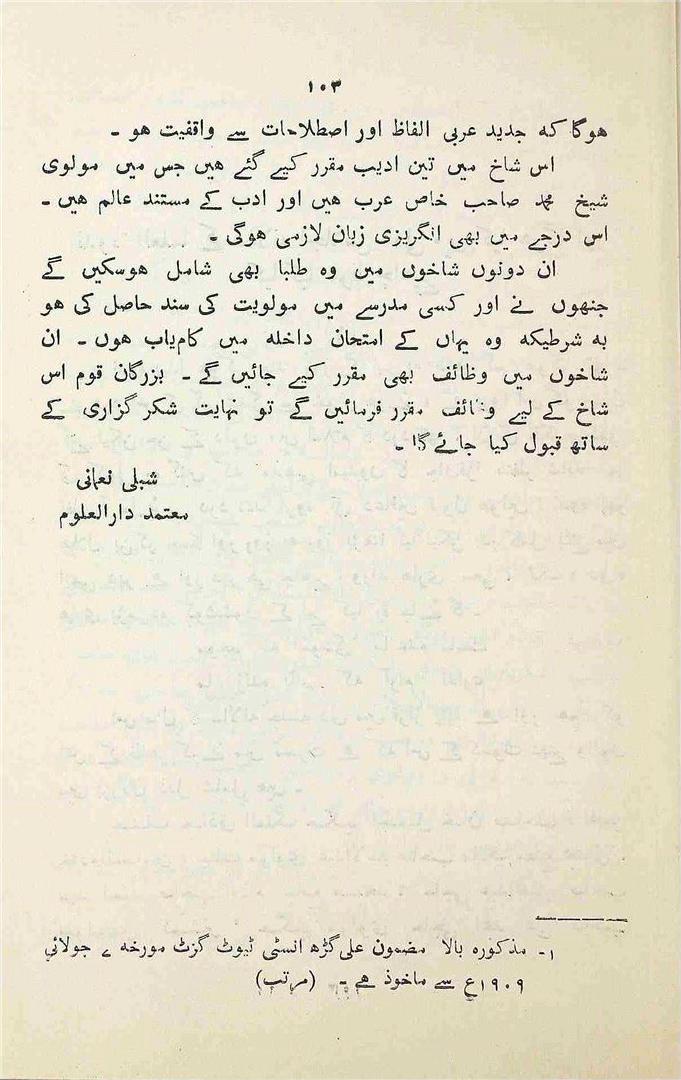 ۱۰۳
ہوگا کہ جدید عربی الفاظ اور اصطلاحات سے واقفیت ہو ۔
اس شاخ میں تین ادیب مقرر کیے گئے ہیں جس میں مولوی
شیخ محمد صاحب خاص عرب ہیں اور ادب کے مستند عالم ہیں ۔
اس درجے میں بھی انگریزی زبان لازمی ہوگی ۔
ان دونوں شاخوں میں وہ طلبا بھی شامل ہوسکیں گے
جنھوں نے اور کسی مدرسے میں مولویت کی سند حاصل کی ہو
بہ شرطیکہ وہ یہاں کے امتحان داخلہ میں کامیاب ہوں ۔ ان
شاخوں میں وظائف بھی مقرر کیے جائیں گے ۔ بزرگان قوم اس
شاخ کے لیے وظائف مقرر فرمائیں گے تو نہایت شکر گزاری کے
ساتھ قبول کیا جائے گا ۔
شبلی نعمانی
معتمد دارالعلوم
۱۔ مذکورہ بالا مضمون علی گڑھ انسٹی ٹیوٹ گزٹ مورخہ ۷ جولائی
۱۹۰۹ع سے ماخوذ ہے ۔ (مرتب)